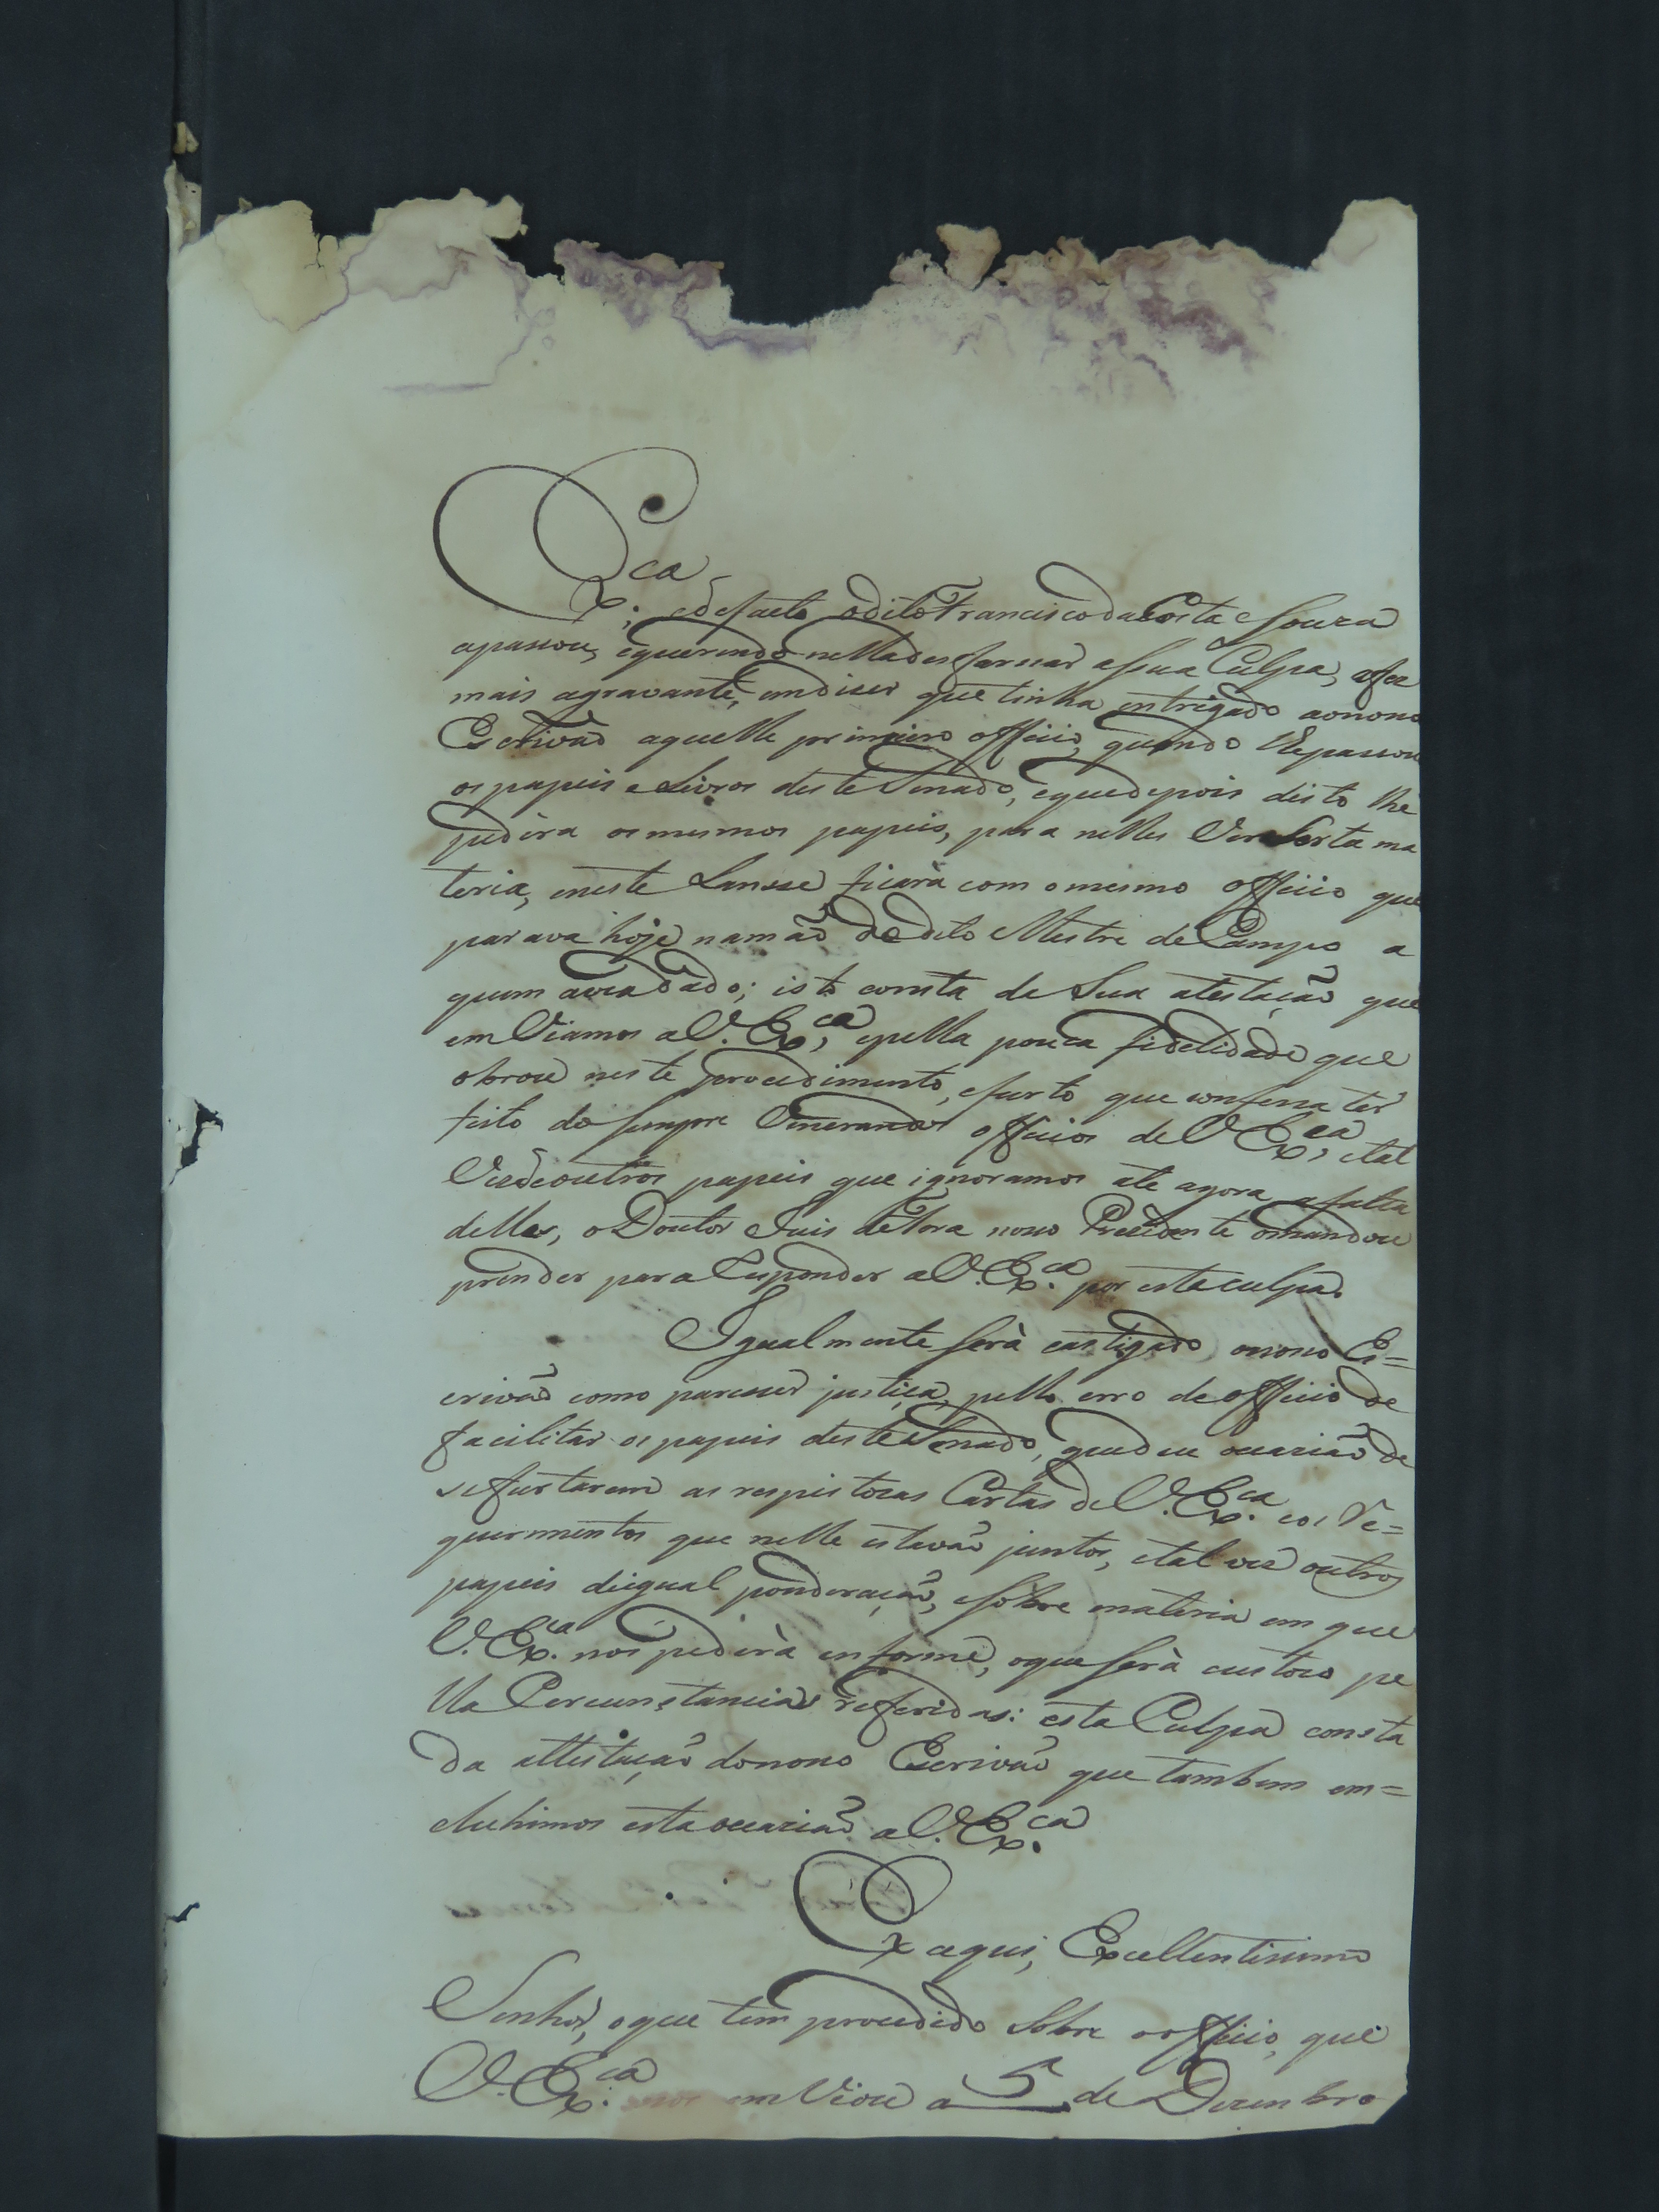 Ex.ca; e de facto o dito Francisco da Costa e Souza
apassou, e querendo nella desfarssar a sua Culpa, afez
mais agravante, em diser que tinha intrigado ao nosso
Escrivaõ aquelle primeiro officio, quando lhe passou
os papeis e Livros deste Senado, e que depois disto lhe
pedira os mesmos papeis, para nelles Ver Serta ma
teria, e neste Lansse ficara com o mesmo officio que
parava hoje na maõ do dito Mestre de Campo a
quem avia dado; isto consta de Sua atestaçaõ que
em Viamos a V. Ex.ca, e pella pouca fidelidade que
obrou neste procedimento, e furto que confessa ter
feito do sempre Venerando officios de V Ex.ca, e tal
Vez de outros papeis que ignoramos ate agora a falta
delles, o Doutor Juis de Fora nosso Presidente o mandou
prender para Responder a V. Ex.ca por esta culpa.
Igualmente serà castigado o nosso Es=
crivaõ como paresser justiça pello erro de officio de
facilitar os papeis deste Senado, que deu occaziaõ de
se furtarem as respeitozas Cartas de V. Ex.ca e os Re=
querimentos que nelle estavaõ juntos, e tal vez outros
papeis de igual ponderaçaõ, e sobre materia em que
V. Ex.ca nos pedirà informe, o que serà custozo pe
lla Cercunstancias referidas: esta Culpa consta
da attestaçaõ do nosso Escrivaõ que tambem em=
cluhimos esta occaziaõ a V. Ex.ca
Ex aqui, Excellentissimo
Senhor, o que tem procedido Sobre o officio, que
V. Ex.ca nos em Viou a 5 de Dezembro